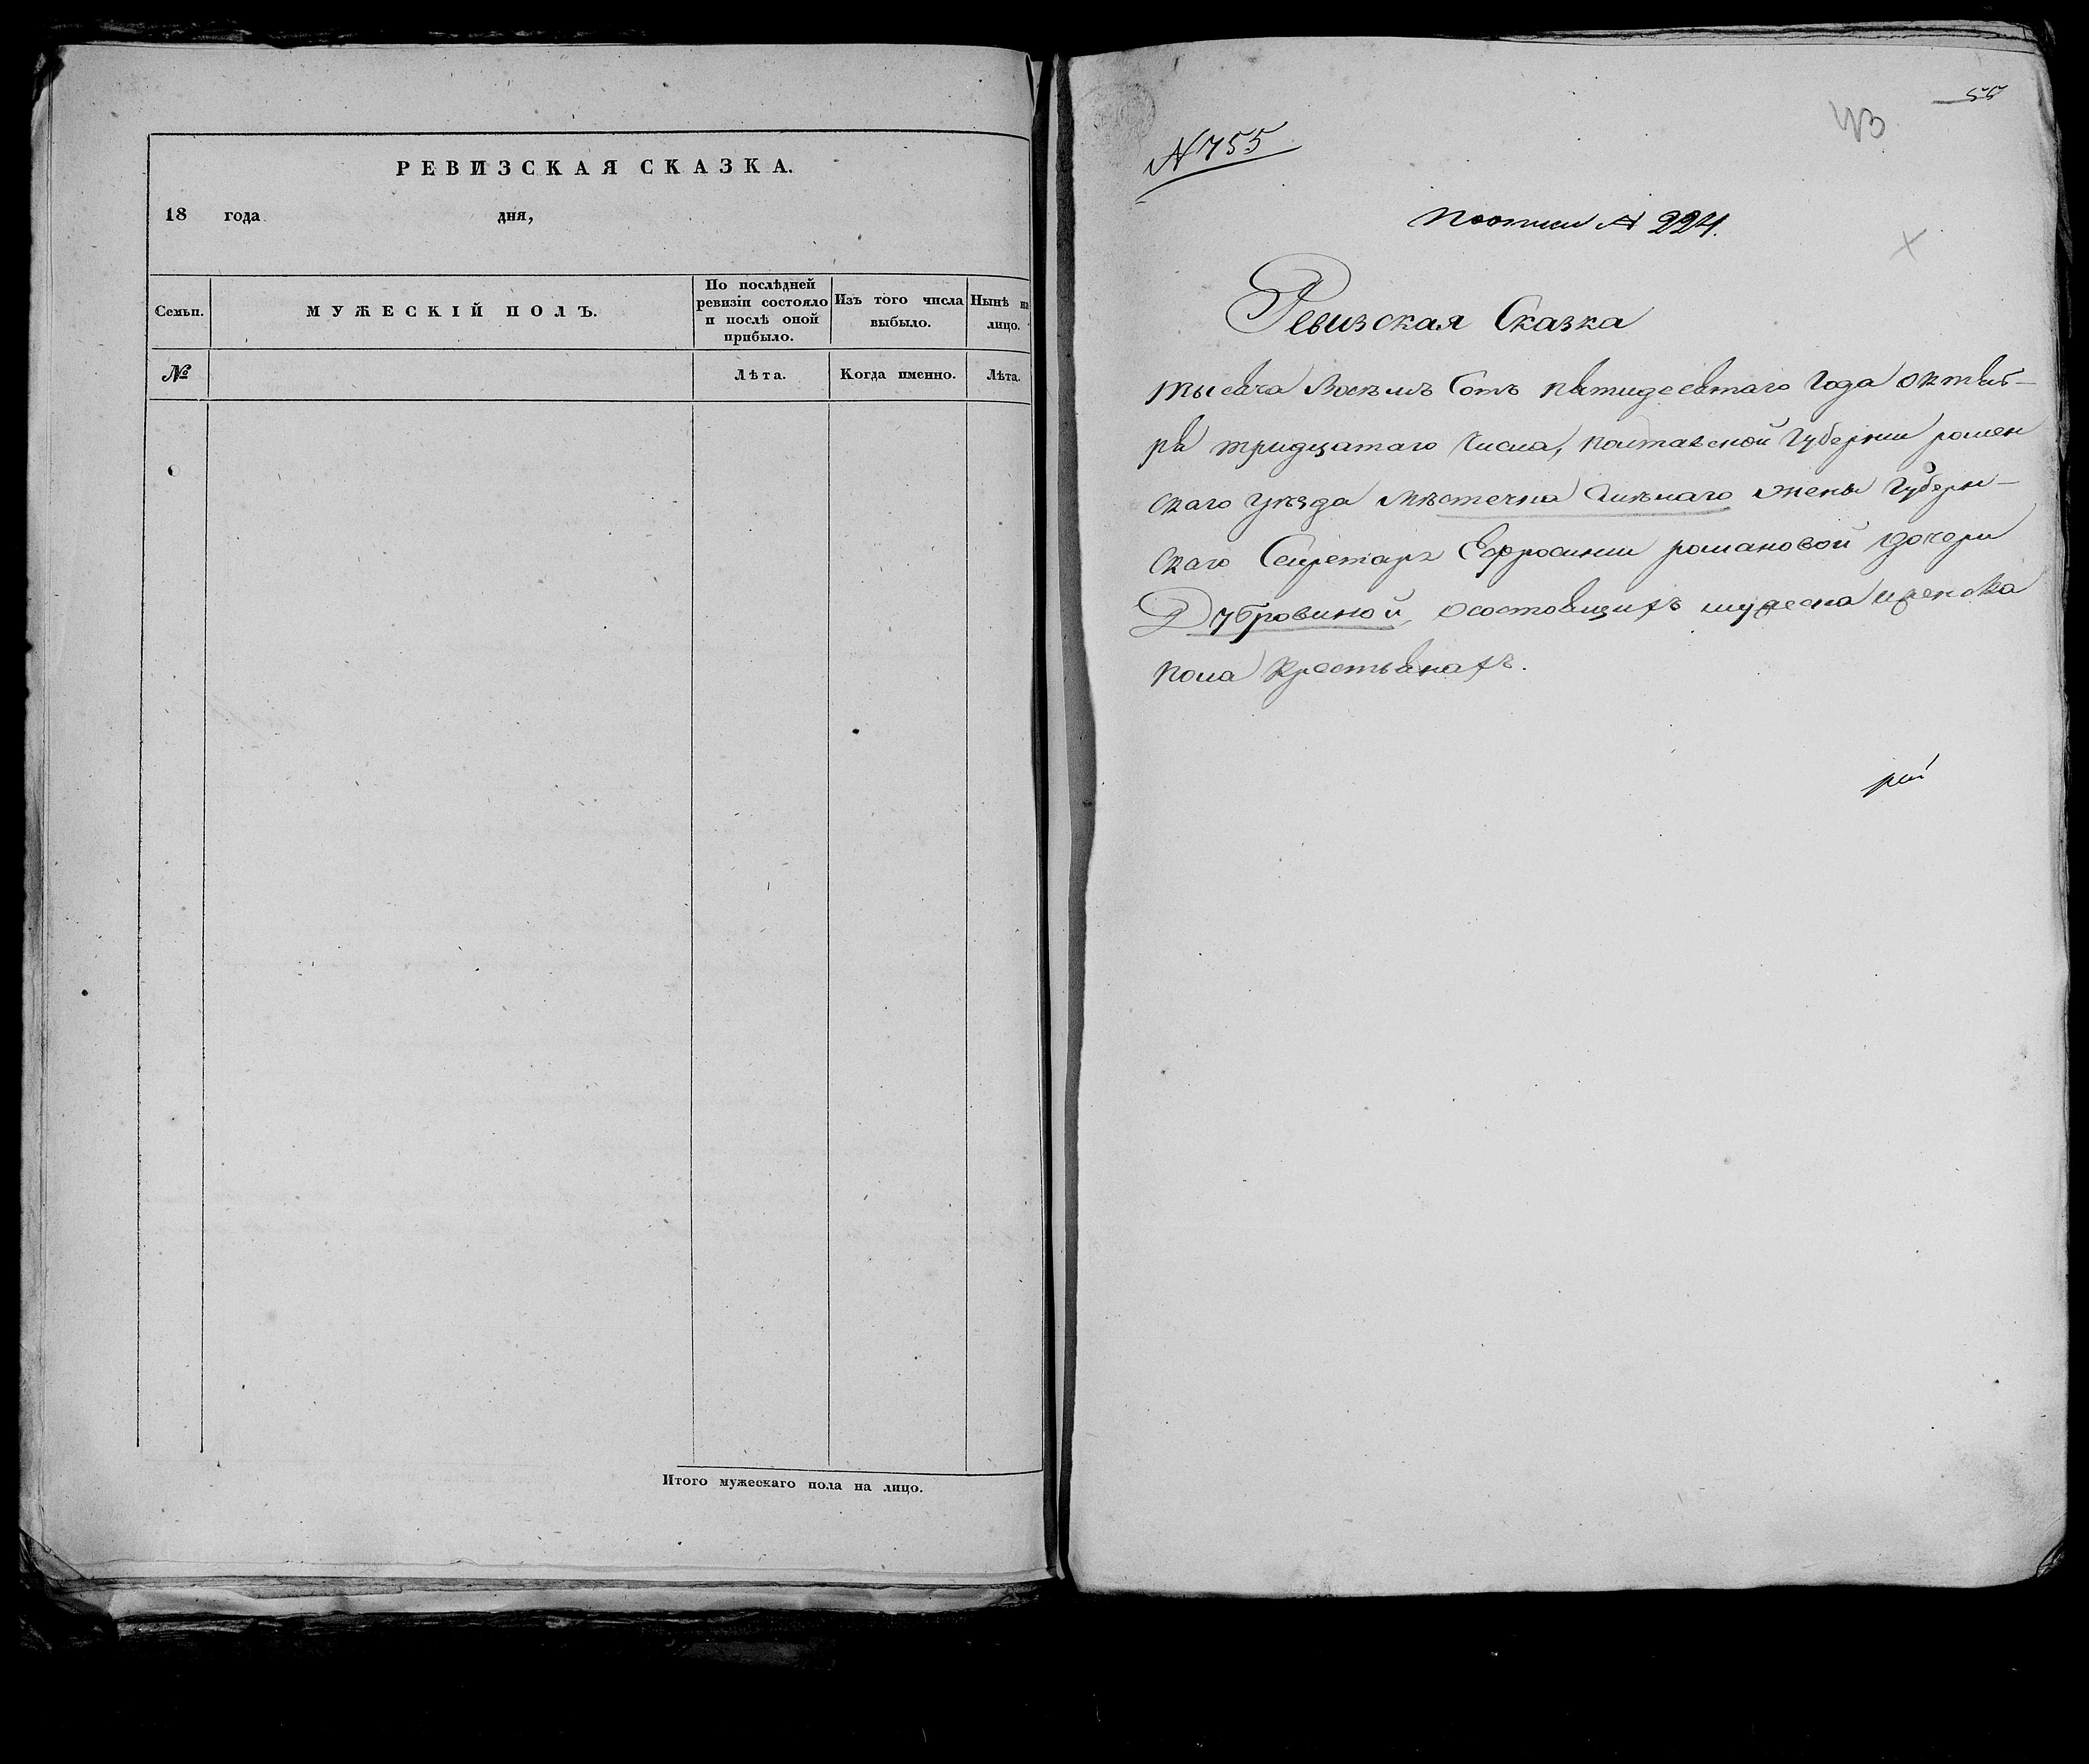 РЕВИЗСКАЯ СКАЗКА.
18 года дня,
Семьи.
МУЖЕСКІЙ ПОЛЪ.
По послѣдней
ревизіи состояло
и послѣ оной
прибыло.
Изъ того числа
выбыло.
Нынѣ на
лицо.
№
Лѣта.
Когда именно.
Лѣта.
Итого мужескаго пола на лицо.
55
№ 755
поописи № 224.
Ревизская Сказка
тысяча Восѣмъ Сотъ пятидесятаго Года октяб-
ря тридцатаго числа, полтавской Губерніи ромен
скаго уѣзда мѣстечка жены Губерн-
скаго Секретаря Ефросиніи романовой дочери
Дубровиной, осостоящихъ мужеска иженска
пола крестьянахъ.